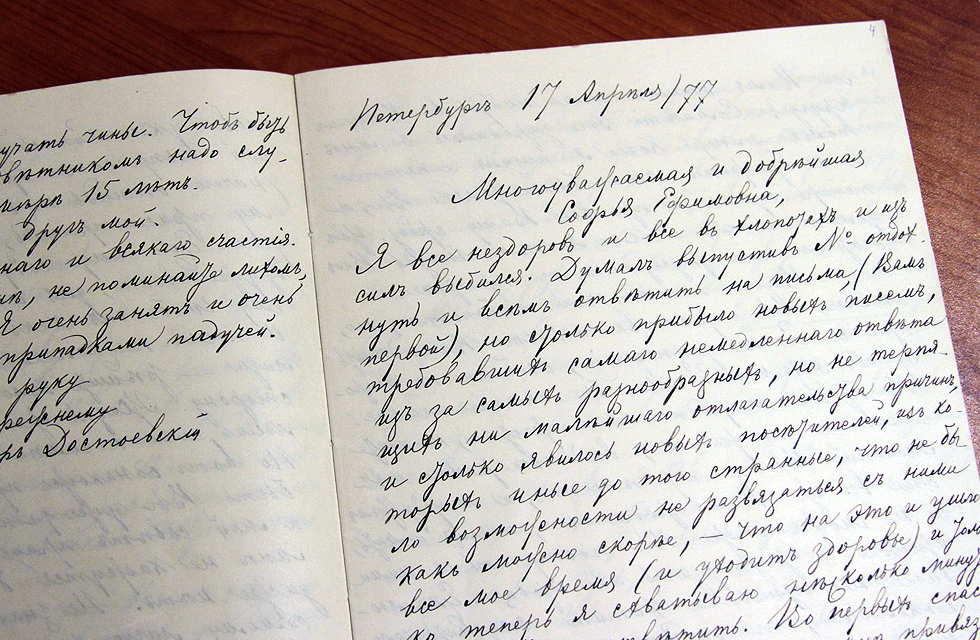 учать чины. Чтобъ быть
овѣтникомъ надо слу-
15 лѣтъ.
другъ мой.
наго и всякаго счастія.
не поминайте лихомъ,
Я очень занятъ и очень
припадками падучей.
руку
режнему
ръ Достоевскій
4
Петербургъ 17 Апрѣля/77
Многоуважаемая и добрѣйшая
Софья Ефимовна,
Я все нездоровъ и все въ хлопотахъ и изъ
силъ выбился. Думалъ выпустивъ № отдох-
нуть и всѣмъ отвѣтить на письма, (Вамъ
первой), но столько прибыло новыхъ писемъ,
требовавшихъ самаго немедленнаго отвѣта
изъ за самыхъ разнообразныхъ, но не терпя-
щихъ ни малѣйшаго отлагательства причинъ,
и столько явилось новыхъ посѣтителей, изъ ко-
торыхъ иные до того странные, что не бы
ло возможности не развязаться съ ними
какъ можно скорѣе, – что на это и ушло
все мое время (и уходитъ здоровье) и толь
ко теперь я схватываю нѣсколько минутъ
отвѣтить. Во первыхъ спас